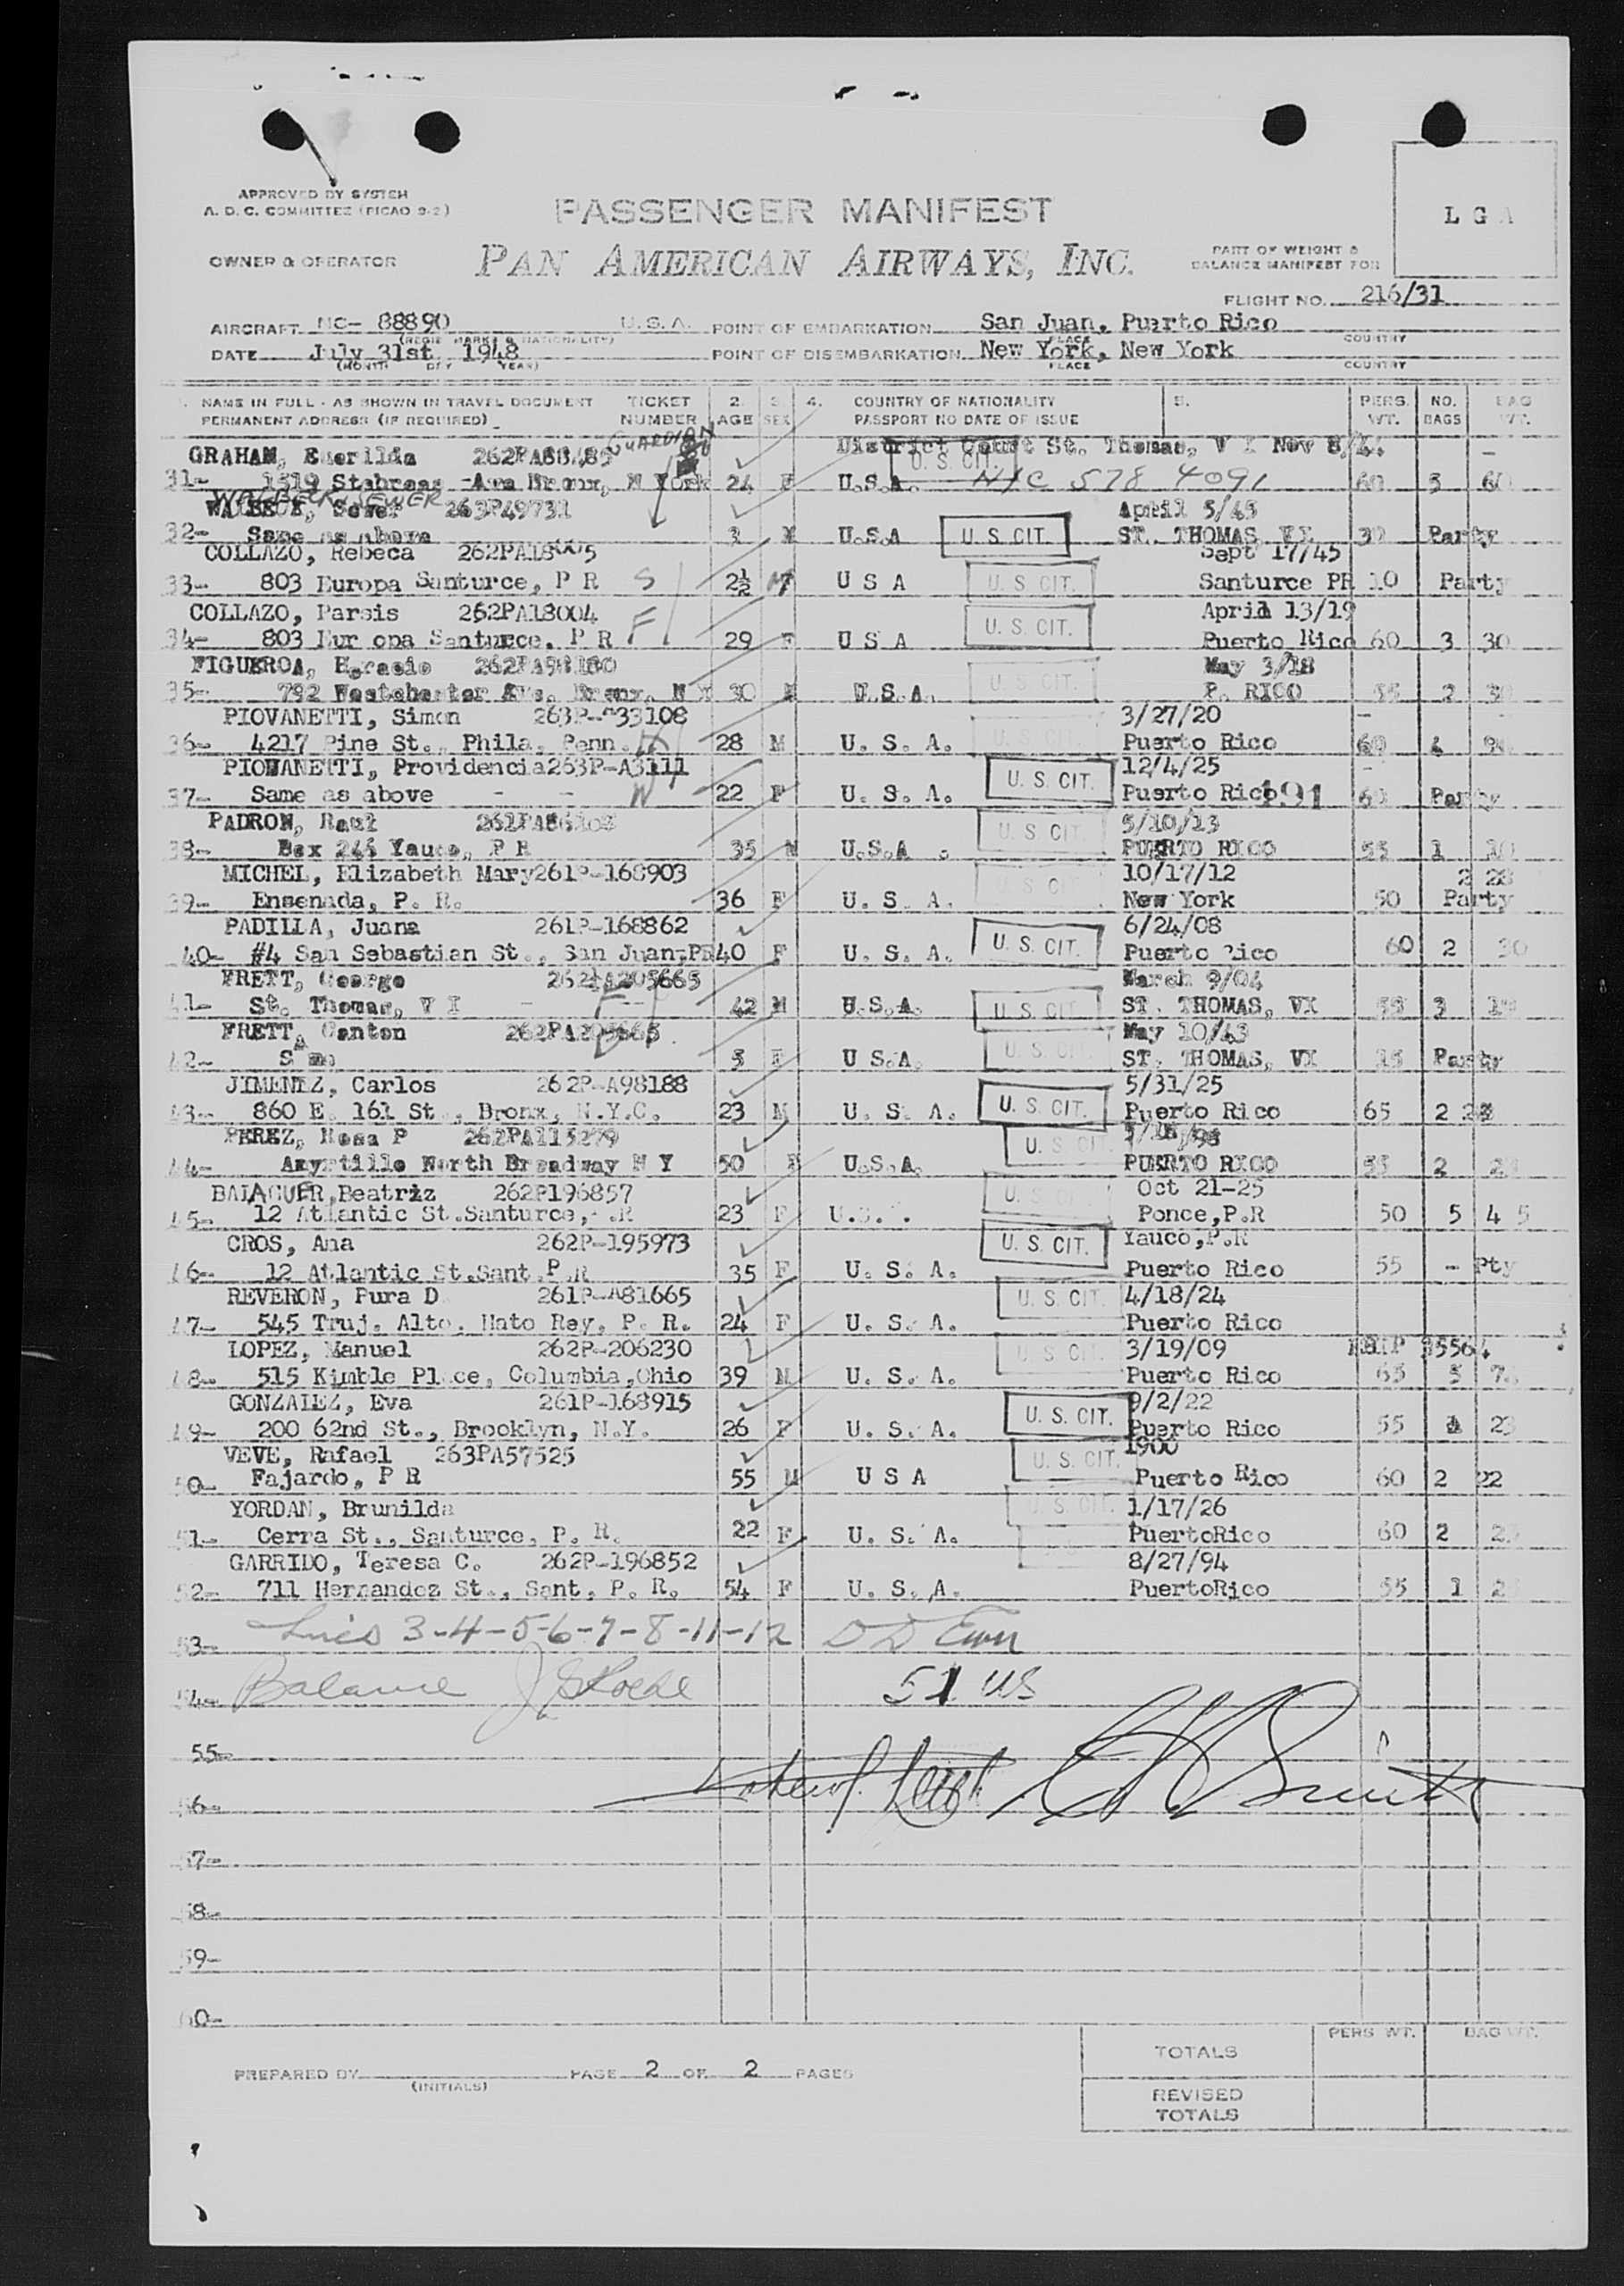 APPROVED BY SYSTEM
A. D. C. COMMITTEE (PICAO 9-2)
PASSENGER MANIFEST
L G A
OWNER & OPERATOR
PAN AMERICAN AIRWAYS, INC.
PART OF WEIGHT &
BALANCE MANIFEST FOR
FLIGHT NO. 216/31
AIRCRAFT NC- 88890 U. S. A. POINT OF EMBARKATION San Juan, Puerto Rico
(REGIS MARKS & NATIONALITY) PLACE COUNTRY
DATE July 31st 1948 POINT OF DISEMBARKATION New York, New York
(MONTH DAY YEAR) PLACE COUNTRY
NAME IN FULL - AS SHOWN IN TRAVEL DOCUMENT TICKET 2. 3. 4. COUNTRY OF NATIONALITY 5. PERS. NO. BAG
PERMANENT ADDRESS (IF REQUIRED) NUMBER AGE SEX PASSPORT NO DATE OF ISSUE WT. BAGS WT.
GUARDIAN
GRAHAM, District Court St. Thomas, V I Nov 8/44
U. S. CIT.
31- 1519 Ave Bronx, N York 24 F U.S.A. NYC 578 4091 60 5 60
WALBECK, SEWER
263P49731 April 5/45
32- Same as above 3 M U.S.A U. S. CIT. ST. THOMAS VI 30 Party
COLLAZO, Rebeca Sept 17/45
33- 803 Europa Santurce, P R S 2½ U S A U. S. CIT. Santurce PR 10 Party
COLLAZO, Parsis 262PA18004 April 13/19
34- 803 Eur opa Santurce, P R F 29 F U S A U. S. CIT. Puerto Rico 60 3 30
FIGUEROA, Horacio May 3/18
35- 792 Westchester Ave, Bronx, N Y 30 M U.S.A. U. S. CIT. P. RICO 55 2 30
PIOVANETTI, Simon 3/27/20
36- 4217 Pine St., Phila, Penn. H 28 M U. S. A. U. S. CIT. Puerto Rico 60
PIOVANETTI, Providencia263P-A3111 12/4/25
37- Same as above - - W 22 F U. S. A. U. S. CIT. Puerto Rico 191 Party
PADRON, Raul 5/10/13
38- Box Yauco, P R 35 M U.S.A. U. S. CIT. PUERTO RICO 55 1
MICHEL, Elizabeth Mary261P-168903 10/17/12 2 28
39- Ensenada, P. R. 36 F U. S. A. U. S. CIT. New York 50 Party
PADILLA, Juana 261P-168862 6/24/08
40- #4 San Sebastian St., San Juan,PR40 F U. S. A. U. S. CIT. Puerto Rico 60 2 30
FRETT, George March 9/04
41- St. Thomas, V I 42 M U.S.A. U. S. CIT. ST. THOMAS, VI 55 3
FRETT, Canton May 10/43
42- Same 5 F U S.A. U. S. CIT. ST. THOMAS, VI Party
JIMENEZ, Carlos 262P-A98188 5/31/25
43- 860 E. 161 St., Bronx, N.Y.C. 23 M U. S. A. U. S. CIT. Puerto Rico 65 2
PEREZ, Rosa P 262PA115279
44- North Broadway N Y 50 F U.S.A. U. S. CIT. PUERTO RICO 55 2
BALAGUER,Beatriz 262P196857 Oct 21-25
45- 12 Atlantic St.Santurce, .R 23 F U.S. . U. S. CIT. Ponce,P.R 50 5 4 5
CROS, Ana 262P-195973 Yauco,P.R
46- 12 Atlantic St.Sant.P.R 35 F U. S. A. U. S. CIT. Puerto Rico 55 - Pty
REVERON, Pura D 261P-A81665 4/18/24
47- 545 Truj. Alto. Hato Rey, P. R. 24 F U. S. A. U. S. CIT. Puerto Rico
LOPEZ, Manuel 262P-206230 3/19/09
48- 515 Kimble Place, Columbia,Ohio 39 M U. S. A. U. S. CIT. Puerto Rico 65 5
GONZALEZ, Eva 261P-168915 9/2/22
49- 200 62nd St., Brooklyn, N.Y. 26 F U. S. A. U. S. CIT. Puerto Rico 55 23
VEVE, Rafael 263PA57525 1900
50- Fajardo, P R 55 M U S A U. S. CIT. Puerto Rico 60 2 22
YORDAN, Brunilda 1/17/26
51- Cerra St., Santurce, P. R. 22 F U. S. A. U. S. CIT. PuertoRico 60 2
GARRIDO, Teresa C. 262P-196852 8/27/94
52- 711 Hernandez St., Sant, P. R. 54 F U. S. A. PuertoRico 55 1
53- Lines 3-4-5-6-7-8-11-12
54- Balance 51 US
55-
56-
57-
58-
59-
60-
PREPARED BY (INITIALS) PAGE 2 OF 2 PAGES
PERS WT. BAG WT.
TOTALS
REVISED
TOTALS